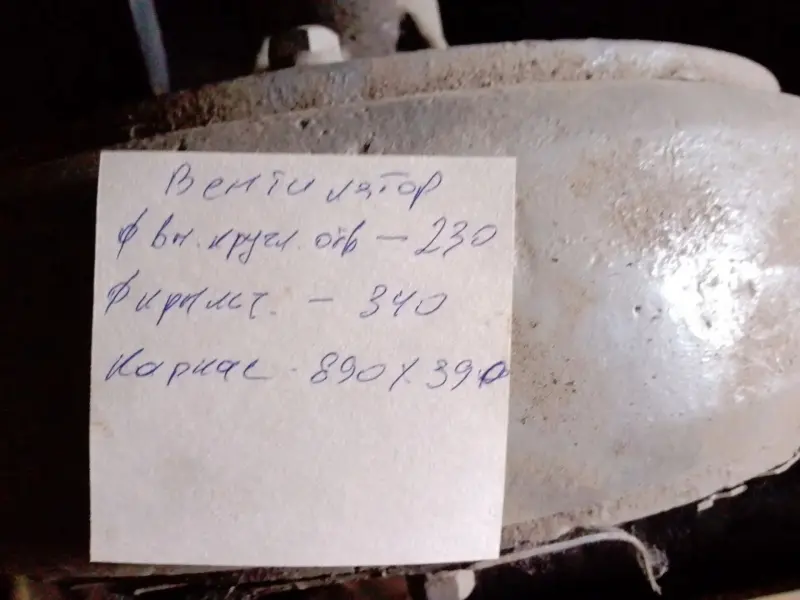 Вентилятор
ф вн. кругл. отв – 230
ф крыльч. – 340
Каркас - 890 х 390